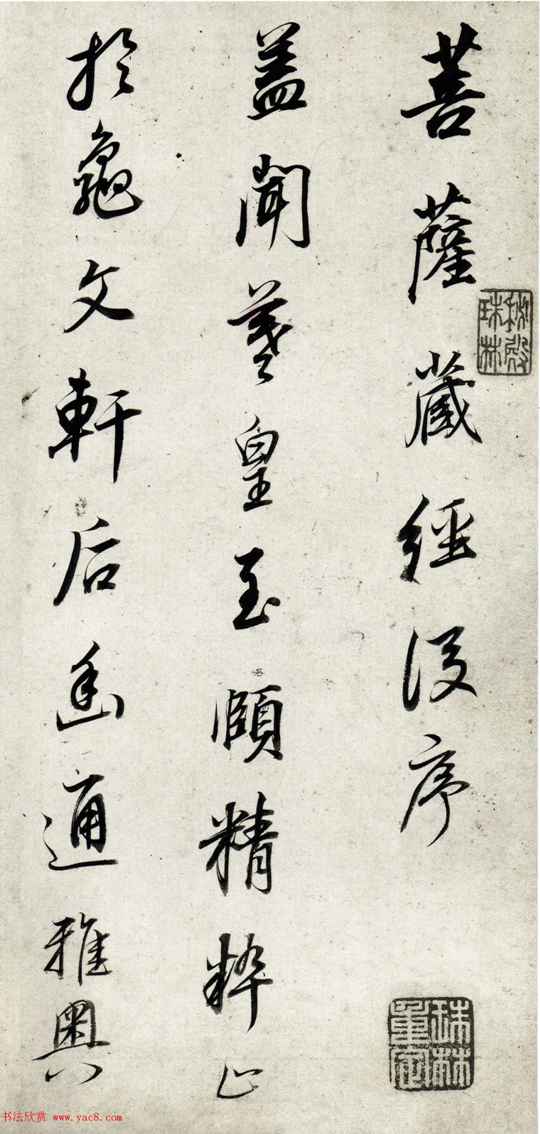 菩薩藏經後序
秘殿珠林
珠林重定
盖聞羲皇至賾精粹止
於龜文軒后幽通雅奧
书法欣赏 www.yac8.com